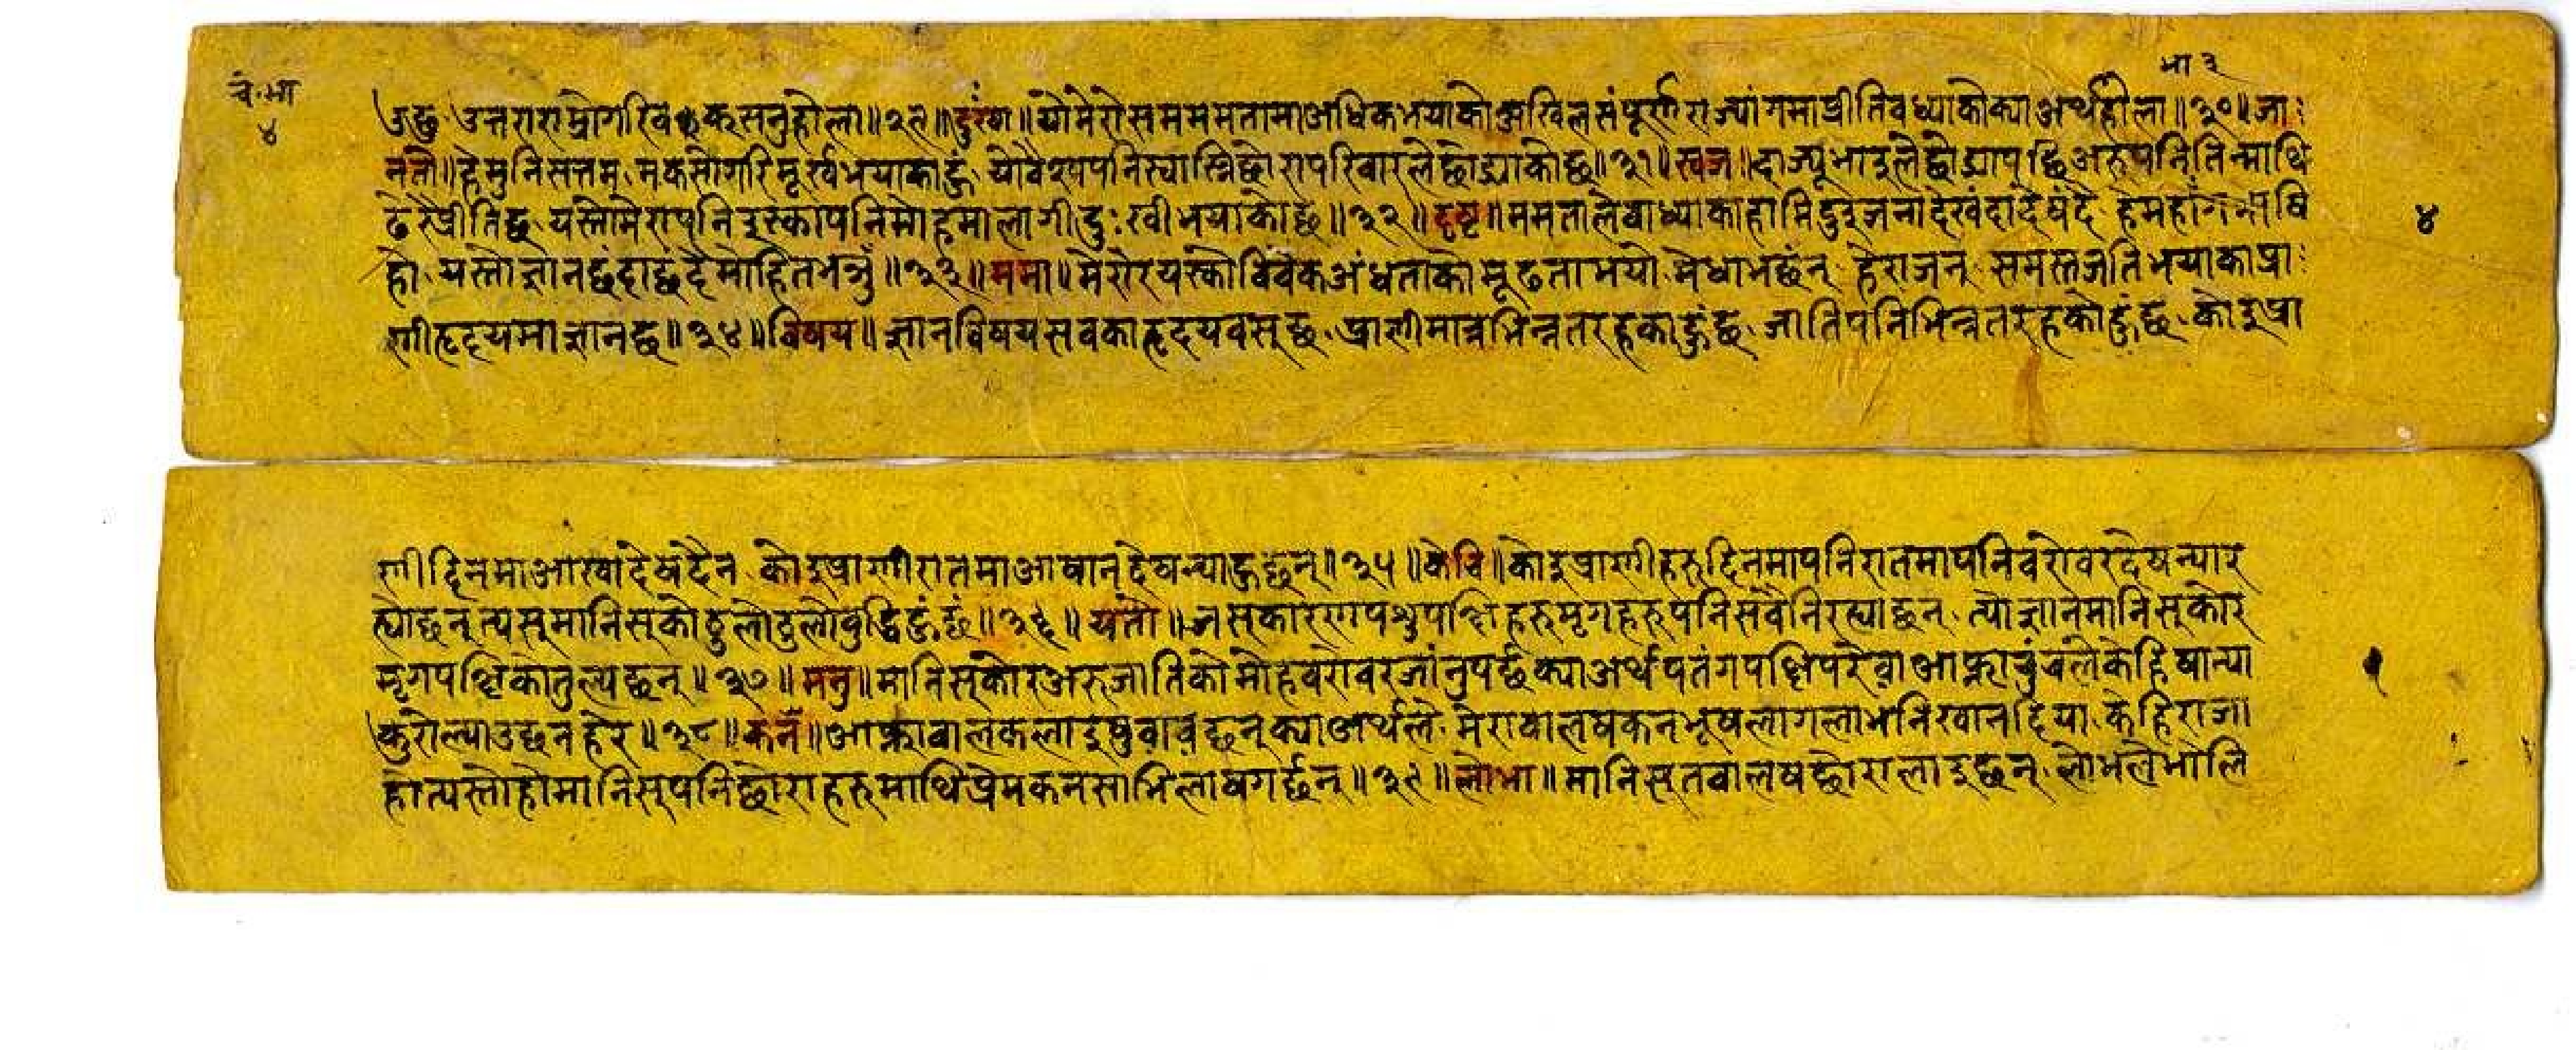 चं.भा
४
भा ३
उछु उत्तरा राम्रो गरि विकसनु होला॥२९॥दुःखा॥यो मेरो सममममतामा अधिक भयाको अखिल संपूर्ण राज्यांगमा प्रीति वध्याको क्या अर्थ होला॥३०॥जा
नतो॥हे मुनिसत्तम् म कसो गरि मूर्ख भयाका हुं यो वैश्य पनि स्वास्नि छोरा परिवारले छोड्याको छ॥३१॥स्वज॥दाज्यू भाइले छोड्या पछि अरु पनि तिनमाथि
ढेरै प्रीति छ यस्तो मेरा पनि इस्का पनि मोहमा लागी दुःखी भयाको छ॥३२॥दृष्ट॥ममताले वाध्याका हामि दुइ जना देखंदा देषंदै हे महां
४
हो यस्तो ज्ञान छंदा छदै मोहित भञुं॥३३॥ममा॥मेरो र यस्को विवेक अंधताको मूढता भयो मेधा भंछन् हे राजन् समस्त जति भयाका प्रा
णी हृदयमा ज्ञान छ॥३४॥विषय॥ज्ञान विषय सवका हृदय वस्छ प्राणीमात्र भिन्न तरहका हुंछ जाति पनि भिन्न तरहको हुंछ कोइ प्रा
णी दिनमा आखा देषदैन कोइ प्राणी रातमा आषान् देषन्या हुछन्॥३५॥केचि॥कोइ प्राणीहरु दिनमा पनि रातमा पनि वरोवर देषन्या र
ह्याछन् त्यसमा निस्को ठुलो ठुलो वुद्धि हुंछ॥३६॥यतो॥जस कारण पशुपक्षिहरु मृगहरु पनि सवै निरह्याछन् त्यो ज्ञान मानिसको र
मृगपक्षिको तुल्य छन्॥३७॥मनु॥मानिसको र अरु जातिको मोह वरोवर जांनुपर्छ क्या अर्थ पतंग पक्षि परेवा आफ्ना चुंचले केहि षान्या
कुरो ल्याउछन हेर॥३८॥कन॥आफ्ना वालकलाइ षुवावछन् क्या अर्थले मेरा वालषकन भूष लागला भनि खान दिया केहि राजा
हो त्यस्तो हो मानिस् पनि छोराहरु माथि प्रेमकन साभिलाष गर्छन्॥३९॥लोभा॥मानिस् त वालष छोरालाइ छन् लोभले भोलि